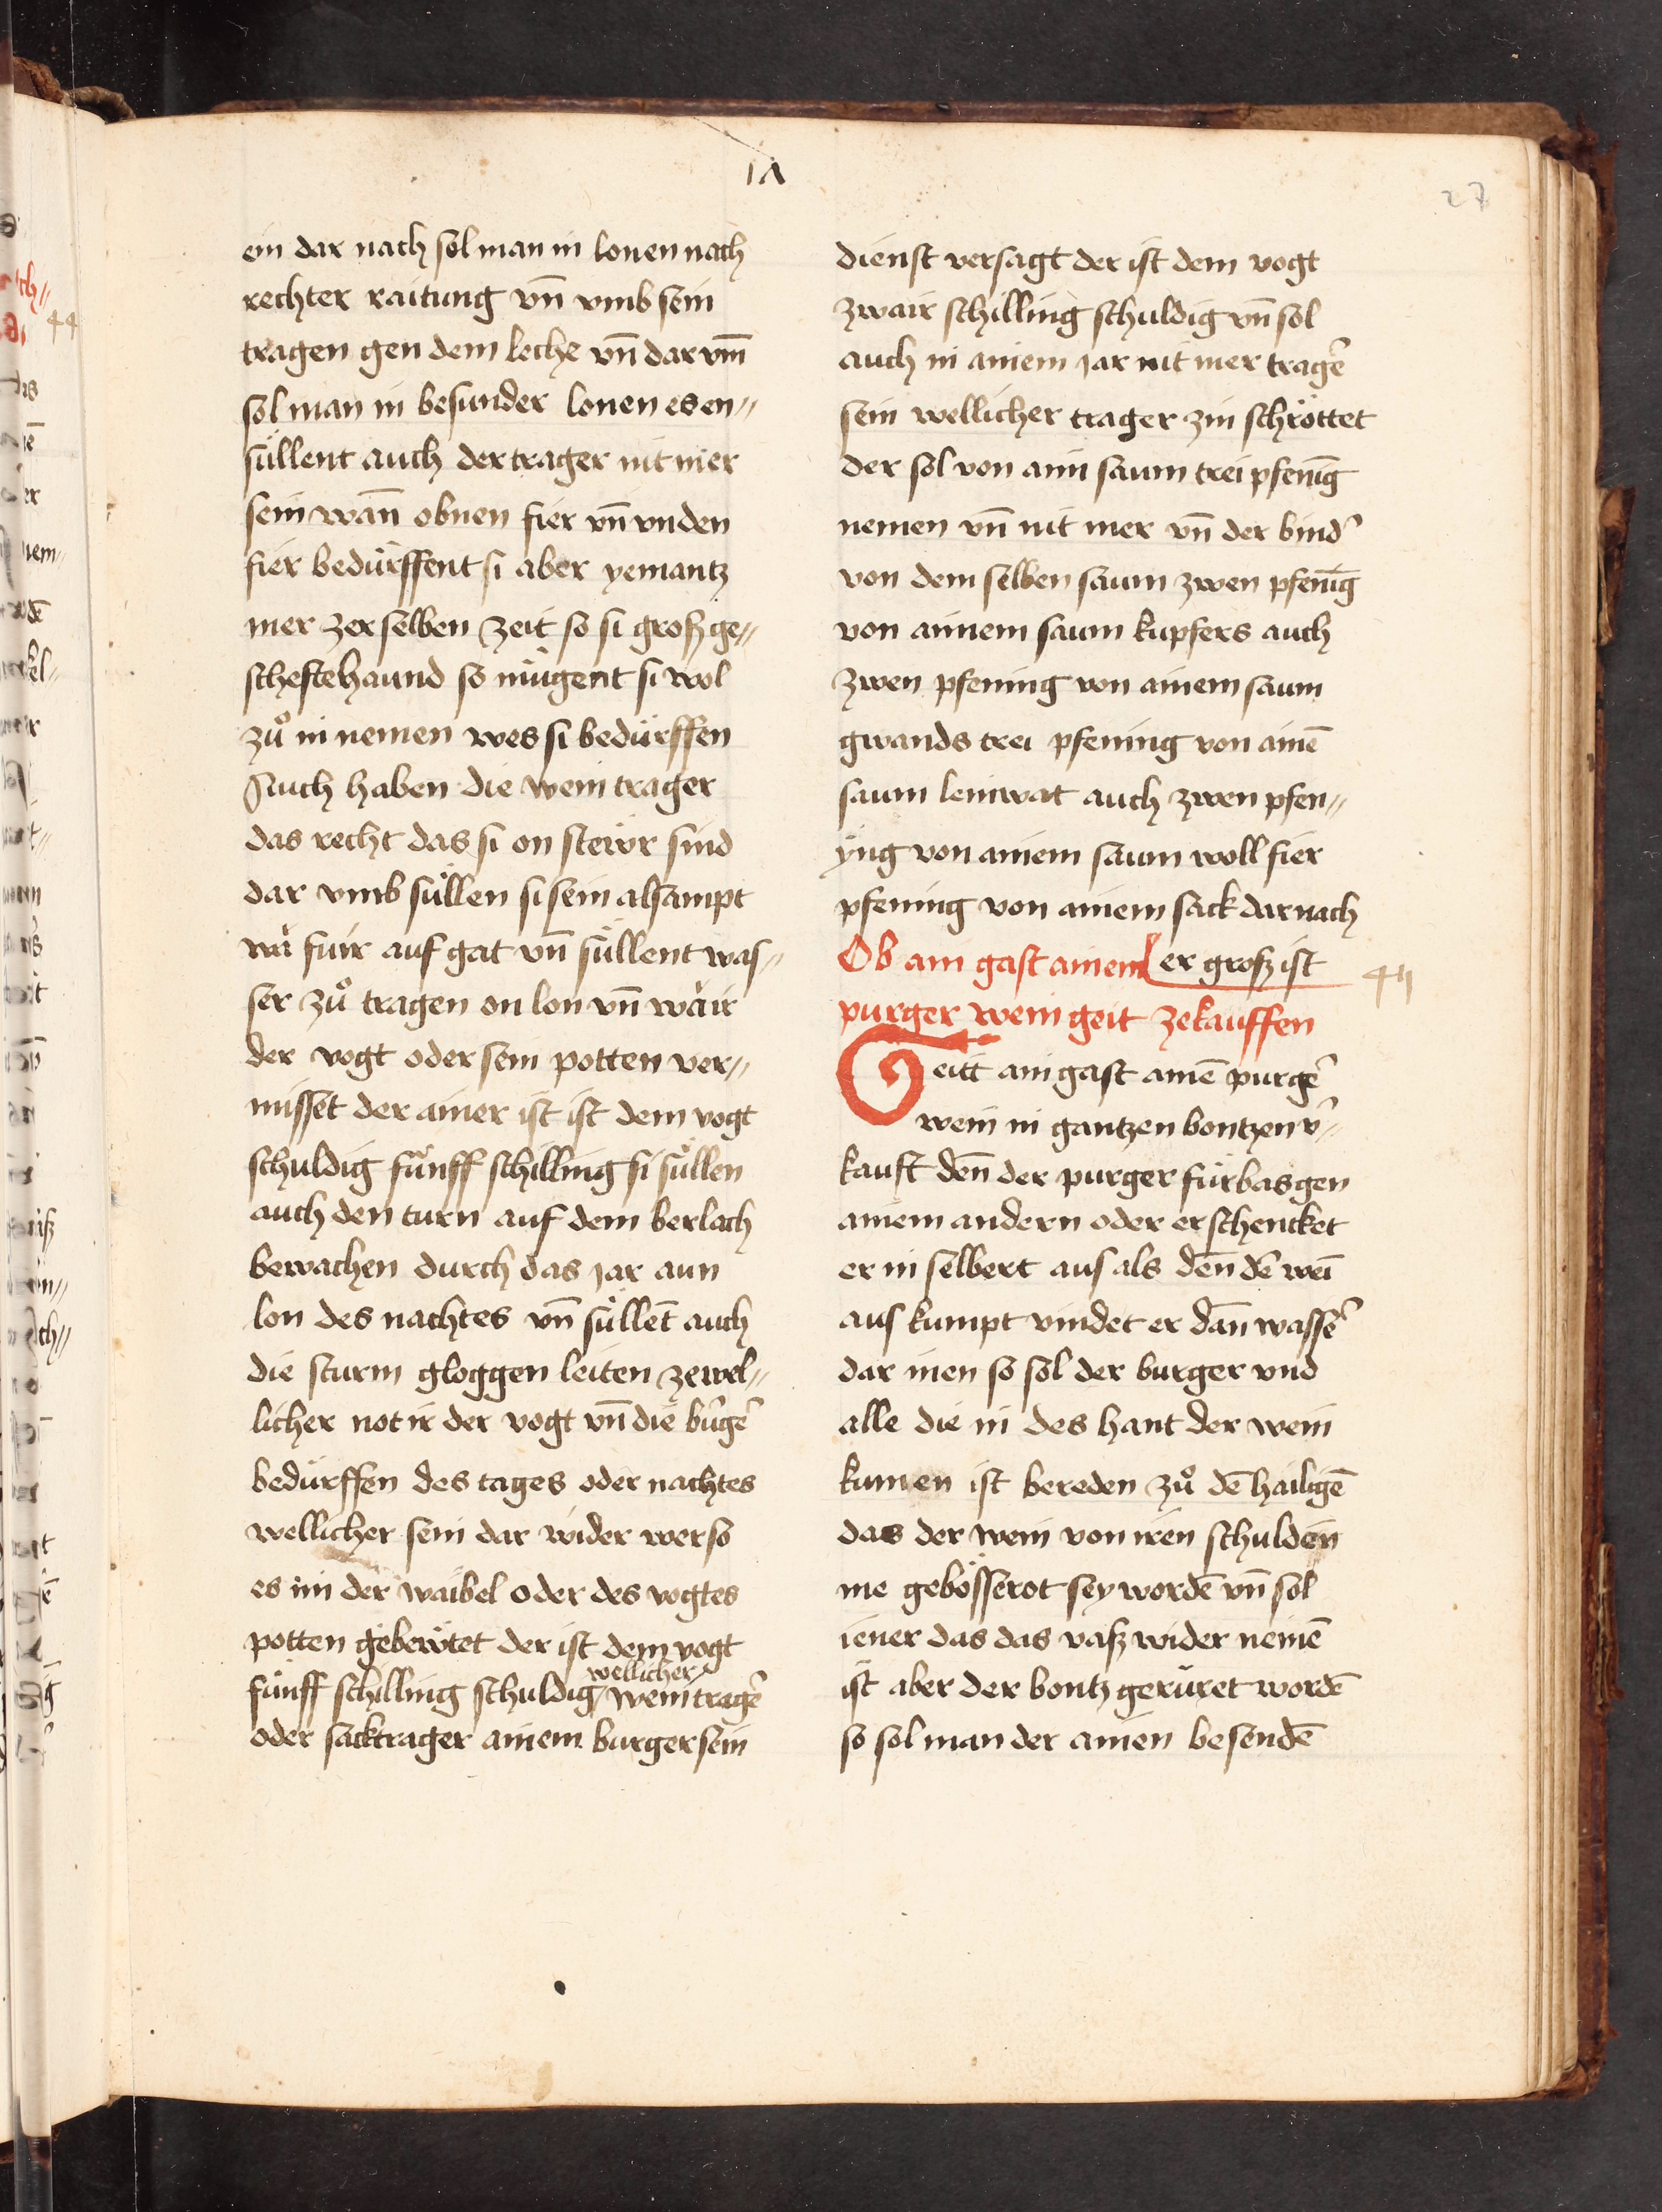 1Λ
27
ein dar nach sol man in lonen nach
rechter raitung vn̄ vmb sein
tragen gen dem leche vn̄ dar vm̄
sol man in besunder lonen es en⸗
süllent auch der trager nit mer
sein wan̄ obnen fier vn̄ vnden
fier bedürffent si aber yemantz
mer zer selben zeit so si groſz ge⸗
scheftehaund so mügent si wol
zuͦ in nemen wes si bedürffen
Auch haben die wein trager
das recht das si on stewr sind
dar vmb süllen si sein alsampt
wä fuir auf gat vn̄ süllent was⸗
ser zuͦ tragen on lon vn̄ wär
der vogt oder sein potten ver⸗
misset der ainer ist ist dem vogt
schuldig fünff schilling si süllen
auch den turn auf dem berlach
bewachen durch das jar aun
lon des nachtes vn̄ süllēt auch
die sturm gloggen leiten ze wel⸗
licher not ir der vogt vn̄ die bürgē
bedürffen des tages oder nachtes
wellicher sein dar wider wer so
es im der waibel oder des vogtes
potten gebewtet der ist dem vogt
wellicher
fünff schilling schuldig / wein tragē
oder sacktrager ainem burger sein
dienst versagt der ist dem vogt
zwair schilling schuldig vn̄ sol
auch in ainem jar nit mer tragē
sein wellicher trager zin schröttet
der sol von aim saum trei pfenīg
nemen vn̄ nit mer vn̄ der bindʼ
von dem selben saum zwen pfenīg
von ainem saum kupfers auch
zwen pfening von ainem saum
gwands trei pfening von ainē
saum leinwat auch zwen pfen⸗
yng von ainem saum woll fier
pfening von ainem sack darnach
er groſz ist
Ob ain gast ainem
purger wein geit ze kauffen
44
Geitt ain gast ainē purgē
wein in gantzen bontzen vʼ⸗
kauft den̄ der purger fürbas gen
ainem andern oder er schencket
er in selbert aus als den̄ dē wei
aus kumpt vindet er dan̄ wassē
dar inen so sol der burger vnd
alle die in des hant der wein
kumen ist bereden zuͦ dē hailigē
das der wein von iren schulden
nie gebösserot sey wordē vn̄ sol
iener das das vaſz wider nemē
ist aber der bontz gerüret wordē
so sol man der ainen besendē